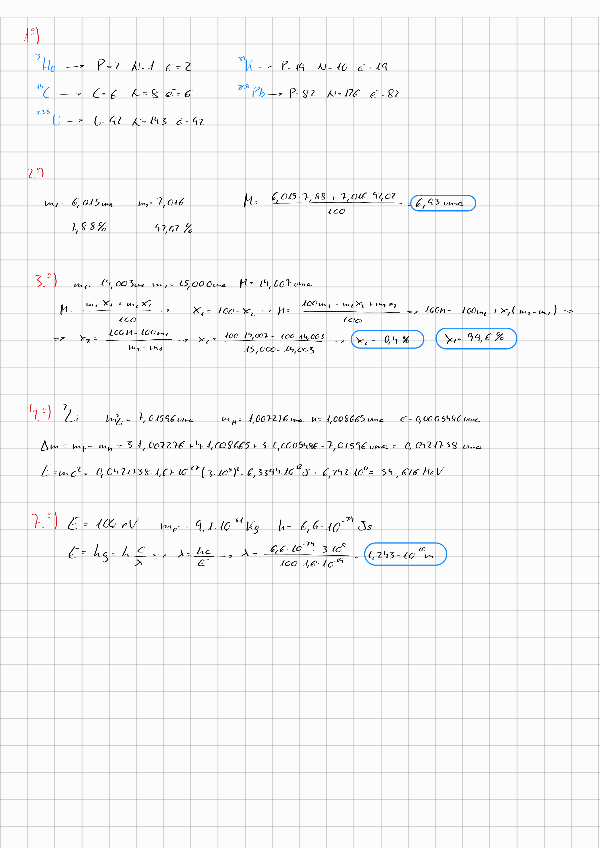 1º)
³He --> P=2 N=1 e=2 ³⁹K --> P=19 N=20 e=19
¹⁴C --> C=6 N=8 e=6 ²⁰⁸Pb --> P=82 N=126 e=82
²³⁵U --> U=92 N=143 e=92
2º)
m₁= 6,015uma m₂=7,016 M= (6,015·7,88 + 7,016·92,07)/100 = 6,93 uma
7,88% 92,07%
3.º) m₁= 14,003uma m₂= 15,000uma M= 14,007uma
M= (m₁X₁+m₂X₂)/100 -> X₁=100-X₂ -> M= (100m₁-m₁X₂+m₂X₂)/100 => 100M=100m₁+X₂(m₂-m₁) =>
=> X₂= (100M-100m₁)/(m₂-m₁) -> X₂= (100·14,007-100·14,003)/(15,000-14,003) -> X₂=0,4% X₁=99,6%
4.º) ⁷Li m⁷Li= 7,01596uma mₚ= 1,007276uma n=1,008665uma e=0,0005486uma
Δm=m_T-m_N=3·1,007276+4·1,008665+3·0,0005486-7,01596uma= 0,0421738 uma
E=mc²= 0,0421738·1,67·10⁻²⁷(3·10⁸)²=6,3394·10⁻¹²J · 6,242·10¹²= 39,616MeV
7.º) E=100eV mₑ= 9,1·10⁻³¹Kg h=6,6·10⁻³⁴Js
E=hg=h c/λ -> λ=hc/E -> λ= (6,6·10⁻³⁴·3·10⁸)/(100·1,6·10⁻¹⁹) = 1,243·10⁻¹⁰m